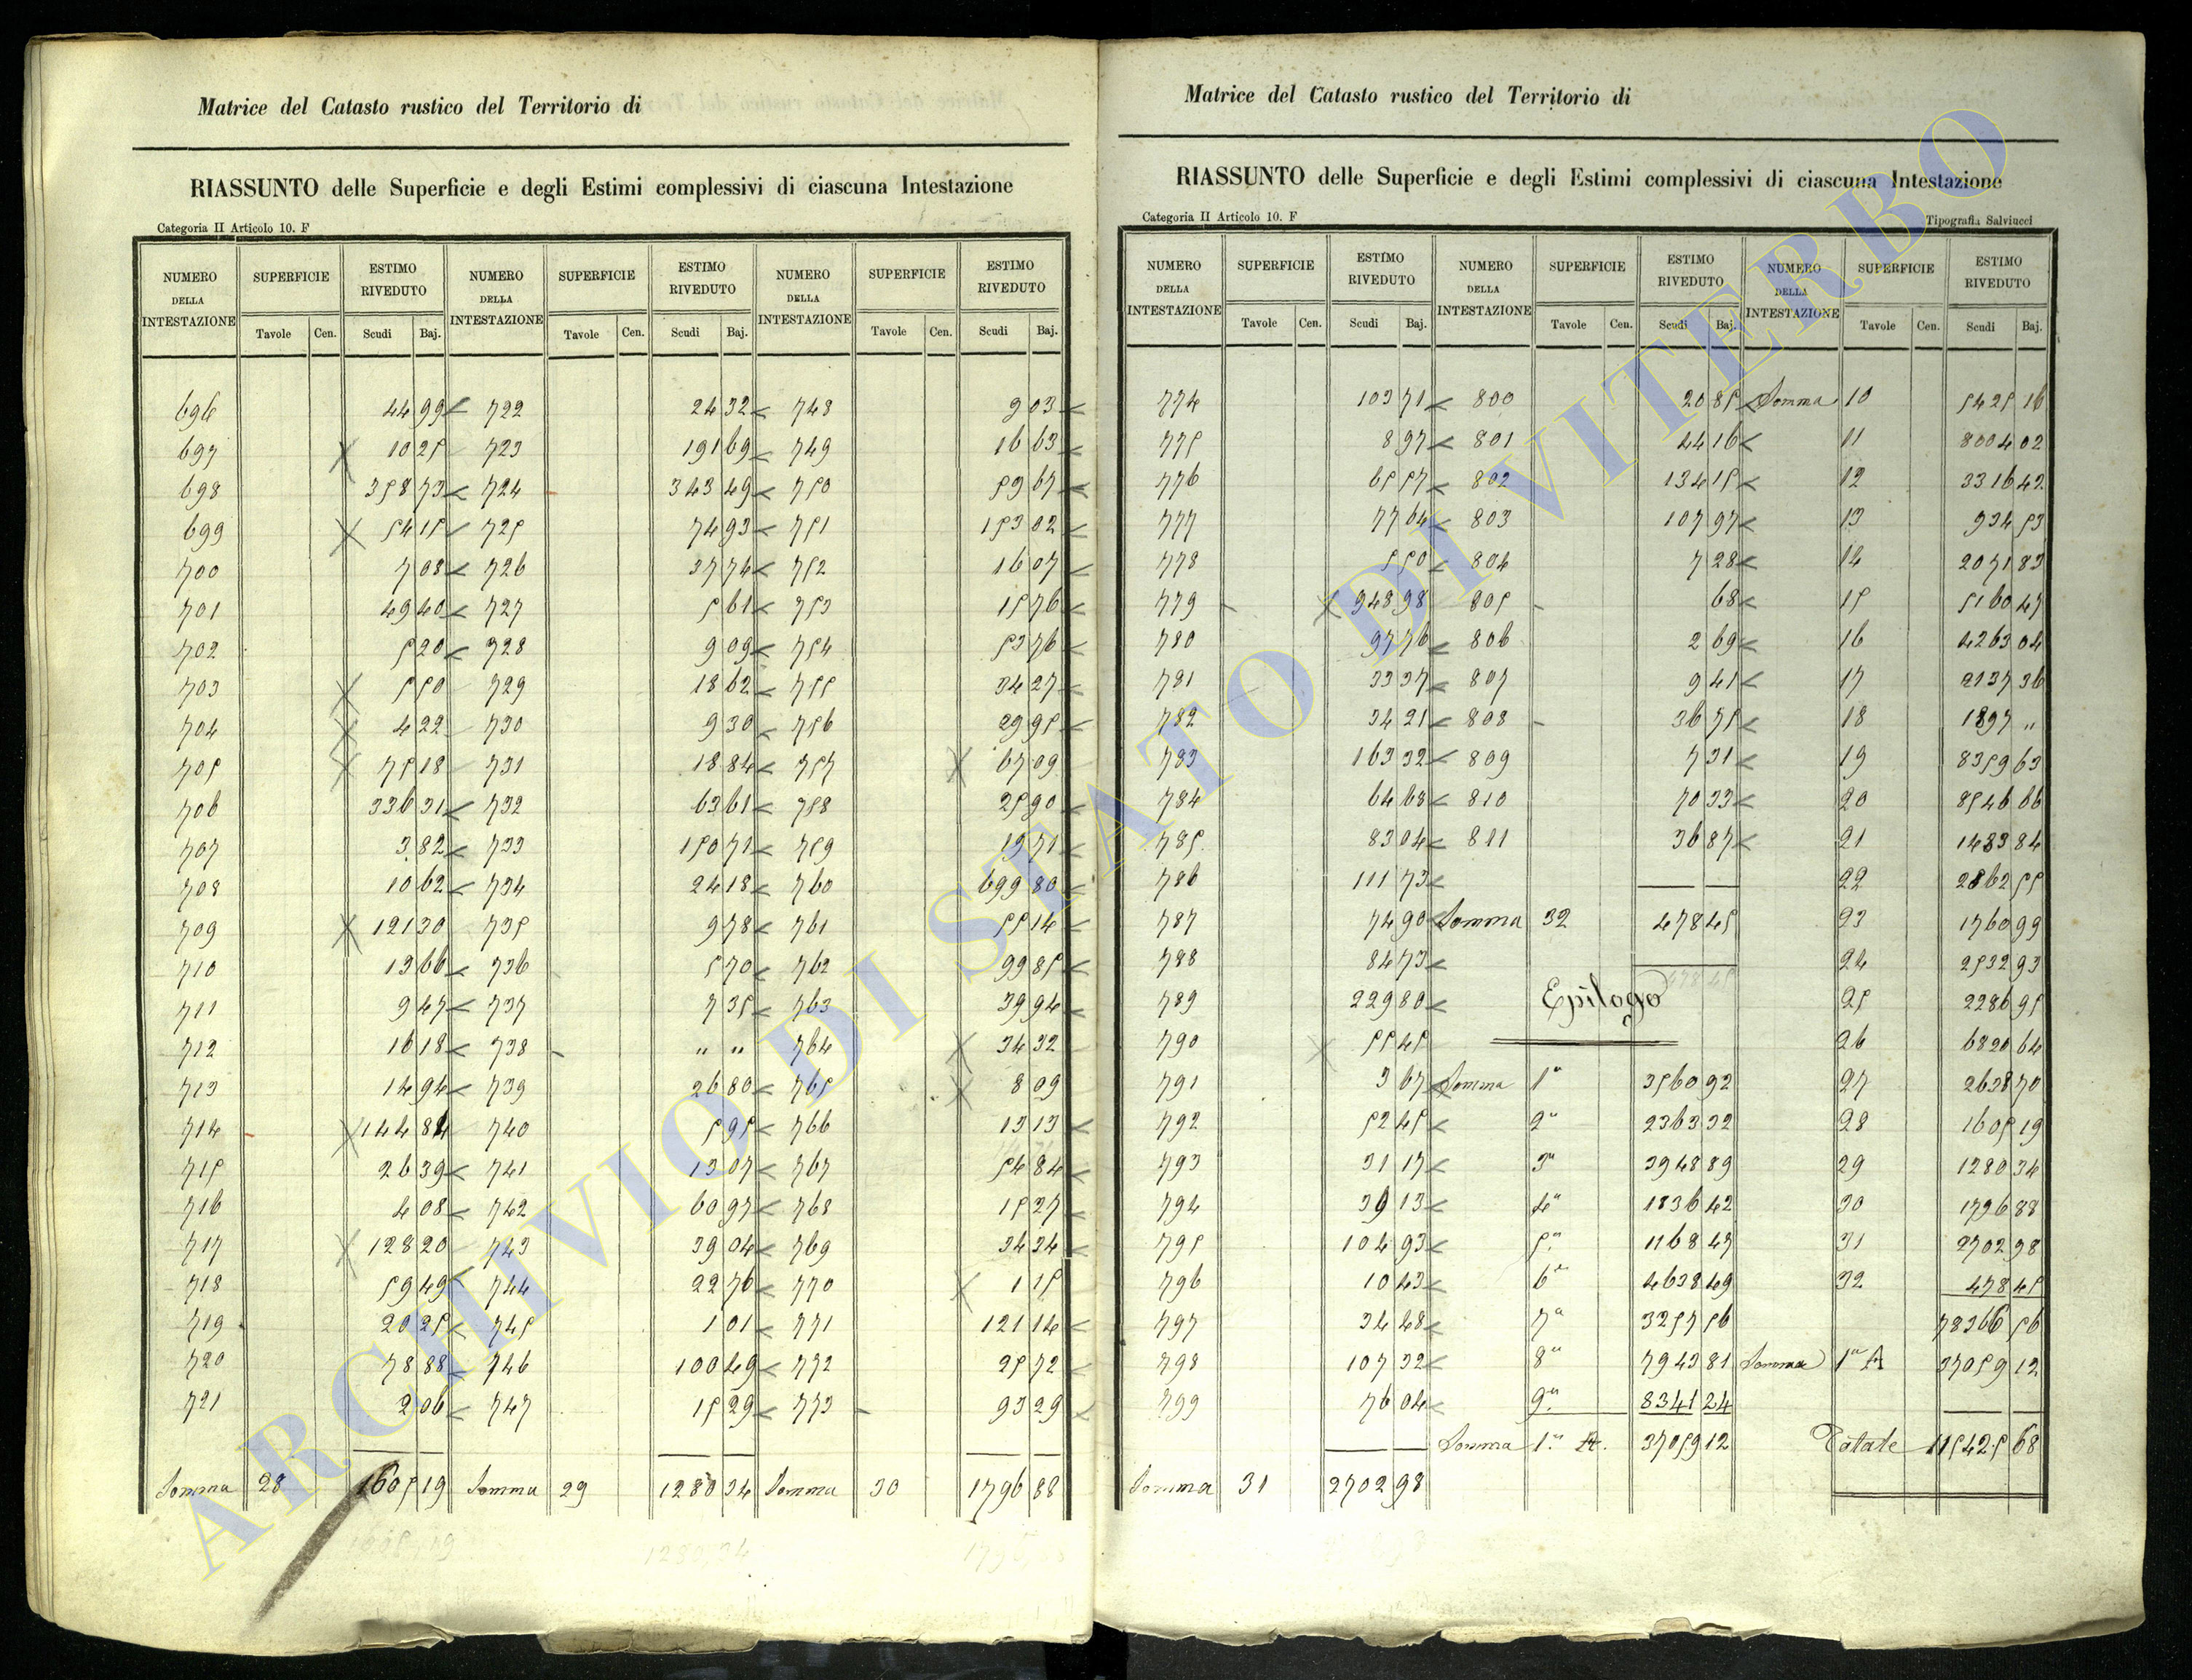 Matrice del Catasto rustico del Territorio di
RIASSUNTO delle Superficie e degli Estimi complessivi di ciascuna Intestazione
Categoria II Articolo 10. F
NUMERO DELLA INTESTAZIONE SUPERFICIE ESTIMO RIVEDUTO NUMERO DELLA INTESTAZIONE SUPERFICIE ESTIMO RIVEDUTO NUMERO DELLA INTESTAZIONE SUPERFICIE ESTIMO RIVEDUTO
Tavole Cen. Scudi Baj. Tavole Cen. Scudi Baj. Tavole Cen. Scudi Baj.
696 44 99 722 24 32 748 9 03
697 10 25 723 191 69 749 16 63
698 358 73 724 343 49 750 59 67
699 54 15 725 74 93 751 153 02
700 7 08 726 37 74 752 16 07
701 49 40 727 5 61 753 15 76
702 5 20 728 9 09 754 53 76
703 5 50 729 18 62 755 34 27
704 4 22 730 9 30 756 29 95
705 75 18 731 18 84 757 67 09
706 336 31 732 63 61 758 25 90
707 3 82 733 150 71 759 19 71
708 10 62 734 24 18 760 699 80
709 121 30 735 9 78 761 55 14
710 13 66 736 5 70 762 99 85
711 9 47 737 7 35 763 39 94
712 16 18 738 " " 764 34 32
713 14 94 739 26 80 765 8 09
714 144 84 740 5 95 766 13 13
715 26 39 741 13 07 767 54 84
716 4 08 742 60 97 768 15 27
717 128 20 743 39 04 769 34 34
718 59 49 744 22 76 770 1 15
719 20 25 745 1 01 771 121 14
720 78 88 746 100 49 772 25 72
721 2 06 747 15 29 773 93 29
Somma 28 1605 19 Somma 29 1280 34 Somma 30 1796 88
Matrice del Catasto rustico del Territorio di
RIASSUNTO delle Superficie e degli Estimi complessivi di ciascuna Intestazione
Categoria II Articolo 10. F Tipografia Salviucci
NUMERO DELLA INTESTAZIONE SUPERFICIE ESTIMO RIVEDUTO NUMERO DELLA INTESTAZIONE SUPERFICIE ESTIMO RIVEDUTO NUMERO DELLA INTESTAZIONE SUPERFICIE ESTIMO RIVEDUTO
Tavole Cen. Scudi Baj. Tavole Cen. Scudi Baj. Tavole Cen. Scudi Baj.
774 103 71 800 20 85 Somma 10 5425 16
775 8 97 801 44 16 11 8004 02
776 65 57 802 134 15 12 3316 42
777 77 64 803 107 97 13 934 53
778 5 50 804 7 28 14 2071 83
779 948 98 805 68 15 5160 47
780 97 76 806 2 69 16 4263 04
781 33 37 807 9 41 17 2137 36
782 34 21 808 36 75 18 1897 "
783 163 32 809 7 31 19 8359 63
784 64 68 810 70 33 20 8546 66
785 83 04 811 36 87 21 1483 84
786 111 73 22 2862 55
787 74 90 Somma 32 478 45 23 1760 99
788 84 73 24 2532 93
789 229 80 Epilogo 25 2286 95
790 55 45 26 6820 64
791 3 67 Somma 1ª 3560 92 27 2638 70
792 52 45 2ª 2363 32 28 1605 19
793 31 17 3ª 3948 89 29 1280 34
794 39 13 4ª 1836 42 30 1796 88
795 104 93 5ª 1168 47 31 2702 98
796 10 43 6ª 4638 49 32 478 45
797 34 48 7ª 3257 56 78366 56
798 107 32 8ª 7943 81 Somma 1ª A 37059 12
799 76 04 9ª 8341 24
Somma 1ª A. 37059 12 Totale 115425 68
Somma 31 2702 98
ARCHIVIO DI STATO DI VITERBO